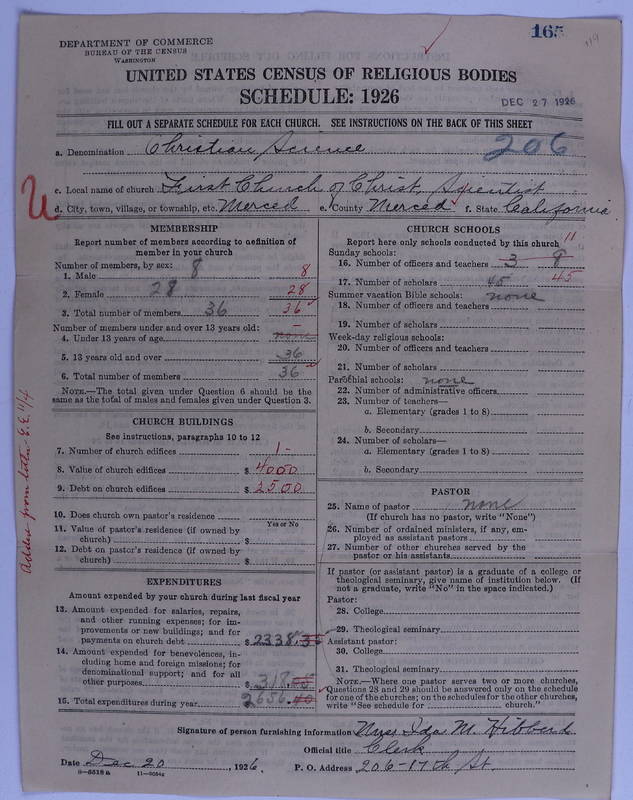 165
119
DEPARTMENT OF COMMERCE
BUREAU OF THE CENSUS
WASHINGTON
UNITED STATES CENSUS OF RELIGIOUS BODIES
SCHEDULE: 1926
DEC 27 1926
FILL OUT A SEPARATE SCHEDULE FOR EACH CHURCH. SEE INSTRUCTIONS ON THE BACK OF THIS SHEET
a. Denomination Christian Science
206
c. Local name of church First Church of Christ, Scientist
d. City, town, village, or township, etc. Merced e. County Merced f. State California
MEMBERSHIP
Report number of members according to definition of member in your church
Number of members, by sex: 8
1. Male 8
2. Female 28 28
3. Total number of members 36 36
Number of members under and over 13 years old:
4. Under 13 years of age none
5. 13 years old and over 36
6. Total number of members 36
NOTE.—The total given under Question 6 should be the same as the total of males and females given under Question 3.
CHURCH BUILDINGS
See instructions, paragraphs 10 to 12
7. Number of church edifices 1
8. Value of church edifices $ 4000
9. Debt on church edifices $ 2500
10. Does church own pastor's residence
Yes or No
11. Value of pastor's residence (if owned by church) $
12. Debt on pastor's residence (if owned by church) $
EXPENDITURES
Amount expended by your church during last fiscal year
13. Amount expended for salaries, repairs, and other running expenses; for improvements or new buildings; and for payments on church debt $ 2338.35
14. Amount expended for benevolences, including home and foreign missions; for denominational support; and for all other purposes $ 318.05
15. Total expenditures during year 2656.40
CHURCH SCHOOLS
Report here only schools conducted by this church
Sunday schools: 11
16. Number of officers and teachers 3 8
17. Number of scholars 45 45
Summer vacation Bible schools: none
18. Number of officers and teachers
19. Number of scholars
Week-day religious schools:
20. Number of officers and teachers
21. Number of scholars
Parochial schools: none
22. Number of administrative officers
23. Number of teachers—
a. Elementary (grades 1 to 8)
b. Secondary
24. Number of scholars—
a. Elementary (grades 1 to 8)
b. Secondary
PASTOR
25. Name of pastor none
(If church has no pastor, write "None")
26. Number of ordained ministers, if any, employed as assistant pastors
27. Number of other churches served by the pastor or his assistants
If pastor (or assistant pastor) is a graduate of a college or theological seminary, give name of institution below. (If not a graduate, write "No" in the space indicated.)
Pastor:
28. College
29. Theological seminary
Assistant pastor:
30. College
31. Theological seminary
NOTE.—Where one pastor serves two or more churches, Questions 28 and 29 should be answered only on the schedule for one of the churches; on the schedules for the other churches, write "See schedule for church."
Signature of person furnishing information Miss Ida M. Hibbard
Official title Clerk
Date Dec 20, 1926. P. O. Address 206-17th St.
8-5518a 11-9054a
Added from letter